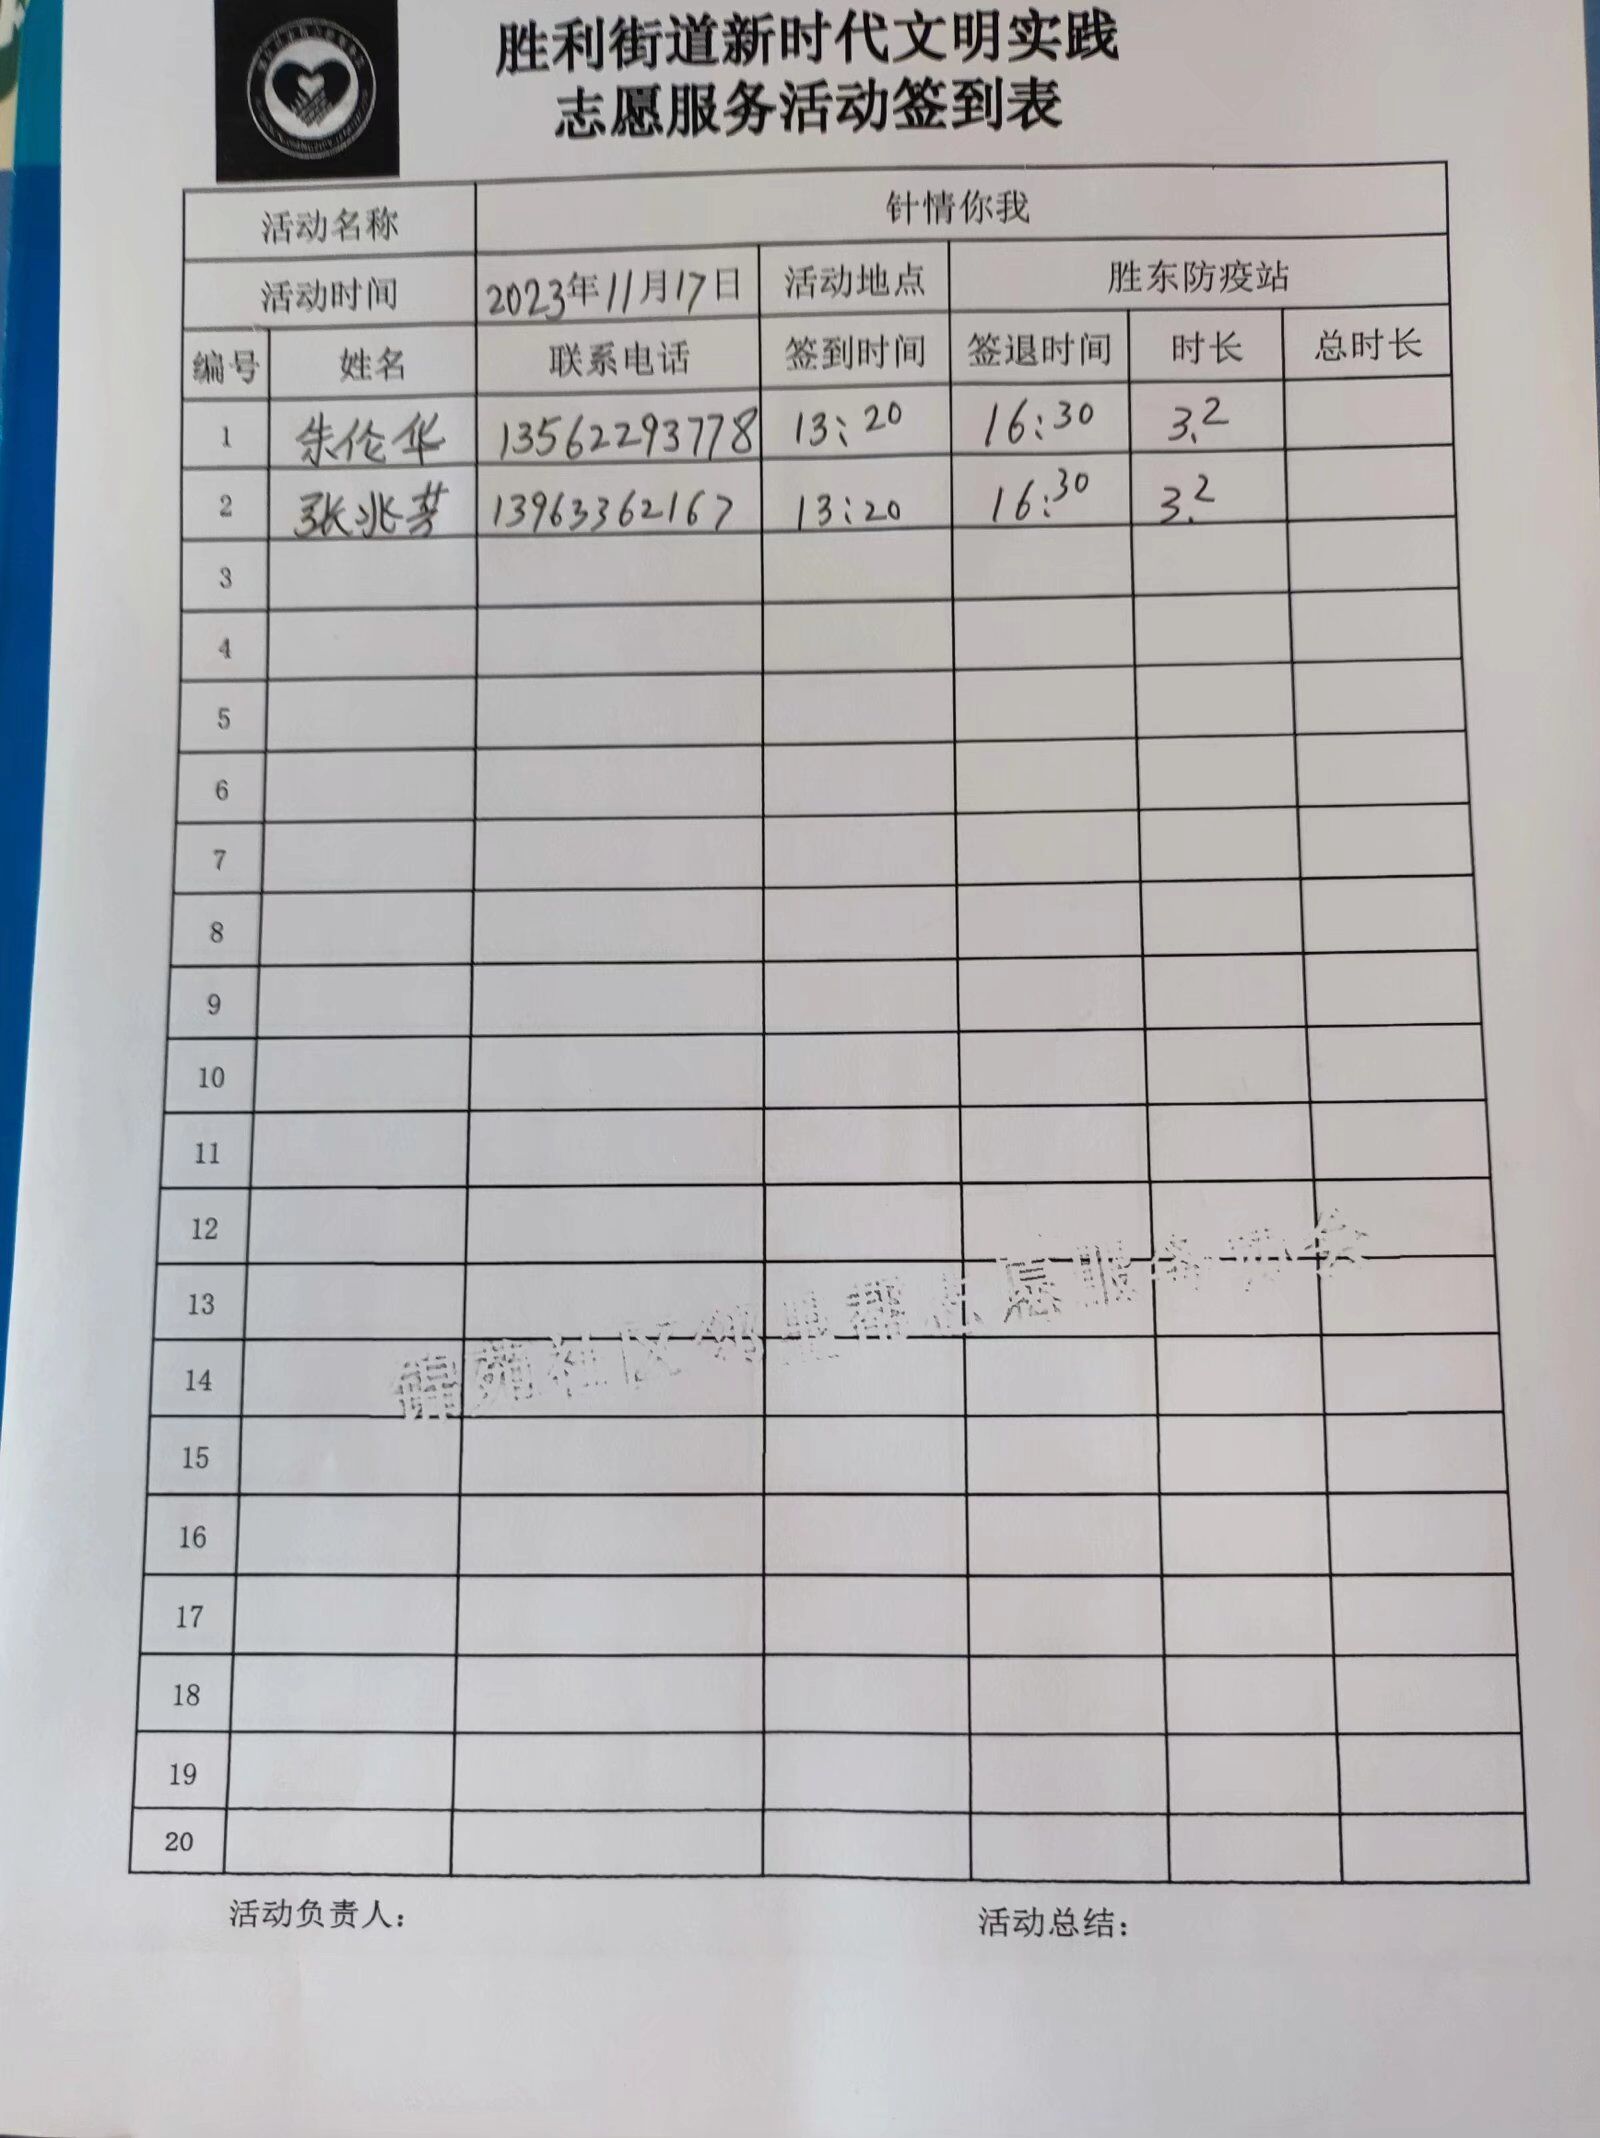 胜利街道新时代文明实践
志愿服务活动签到表
活动名称 针情你我
活动时间 2023年11月17日 活动地点 胜东防疫站
编号 姓名 联系电话 签到时间 签退时间 时长 总时长
1 朱伦华 13562293778 13:20 16:30 3.2
2 张兆芳 13963362167 13:20 16:30 3.2
3
4
5
6
7
8
9
10
11
12
13
14
15
16
17
18
19
20
锦苑社区邻里帮志愿服务协会
活动负责人： 活动总结：